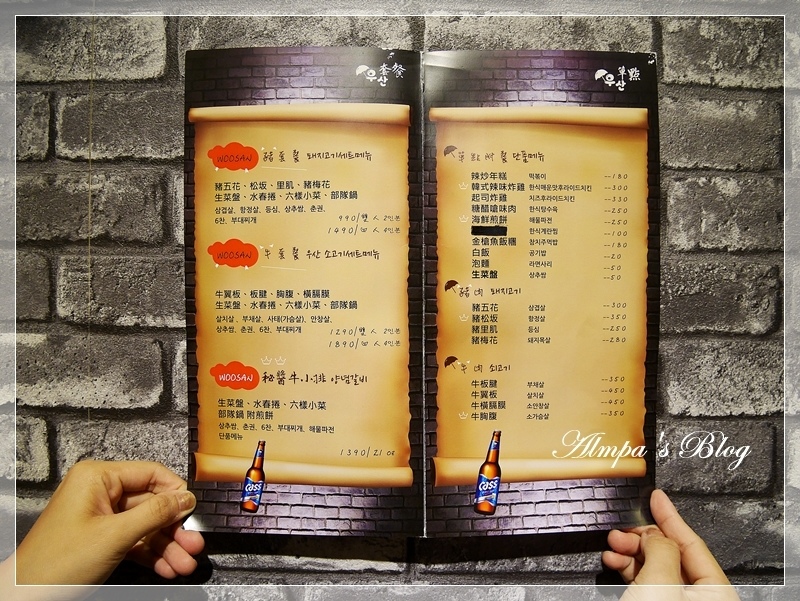 우산 套餐
WOOSAN 豬 套 餐 돼지고기세트메뉴
豬五花、松坂、里肌、豬梅花
生菜盤、水春捲、六樣小菜、部隊鍋
삼겹살, 항정살, 등심, 상추쌈, 춘권,
6찬, 부대찌개
990/雙人 2인분
1490/四人 4인분
WOOSAN 牛 套 餐 우산 소고기세트메뉴
牛翼板、板腱、胸腹、橫膈膜
生菜盤、水春捲、六樣小菜、部隊鍋
살치살, 부채살, 사태(가슴살), 안창살,
상추쌈, 춘권, 6찬, 부대찌개
1290/雙人 2인분
1890/四人 4인분
WOOSAN 秘醬牛小排 양념갈비
生菜盤、水春捲、六樣小菜
部隊鍋 附煎餅
상추쌈, 춘권, 6찬, 부대찌개, 해물파전
단품메뉴
1390/21oz
Cass
우산 單點
單 點 附 餐 단품메뉴
辣炒年糕 떡볶이 --180
韓式辣味炸雞 한식매운맛후라이드치킨 --300
起司炸雞 치즈후라이드치킨 --330
糖醋嗆味肉 한식탕수육 --250
海鮮煎餅 해물파전 --250
한식계란찜 --100
金槍魚飯糰 참치주먹밥 --180
白飯 공기밥 --20
泡麵 라면사리 --50
生菜盤 상추쌈 --50
豬 肉 돼지고기
豬五花 삼겹살 --300
豬松坂 항정살 --350
豬里肌 등심 --250
豬梅花 돼지목살 --280
牛 肉 쇠고기
牛板腱 부채살 --350
牛翼板 살치살 --450
牛橫膈膜 소안창살 --450
牛胸腹 소가슴살 --350
Cass
Almpa's Blog